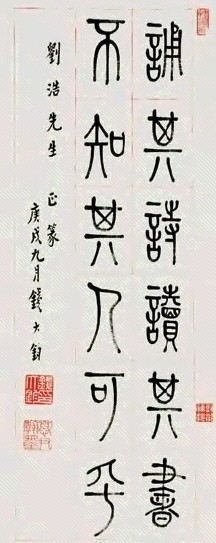 誦其詩讀其書
不知其人可乎
劉浩先生 正篆
庚戌九月錢大鈞